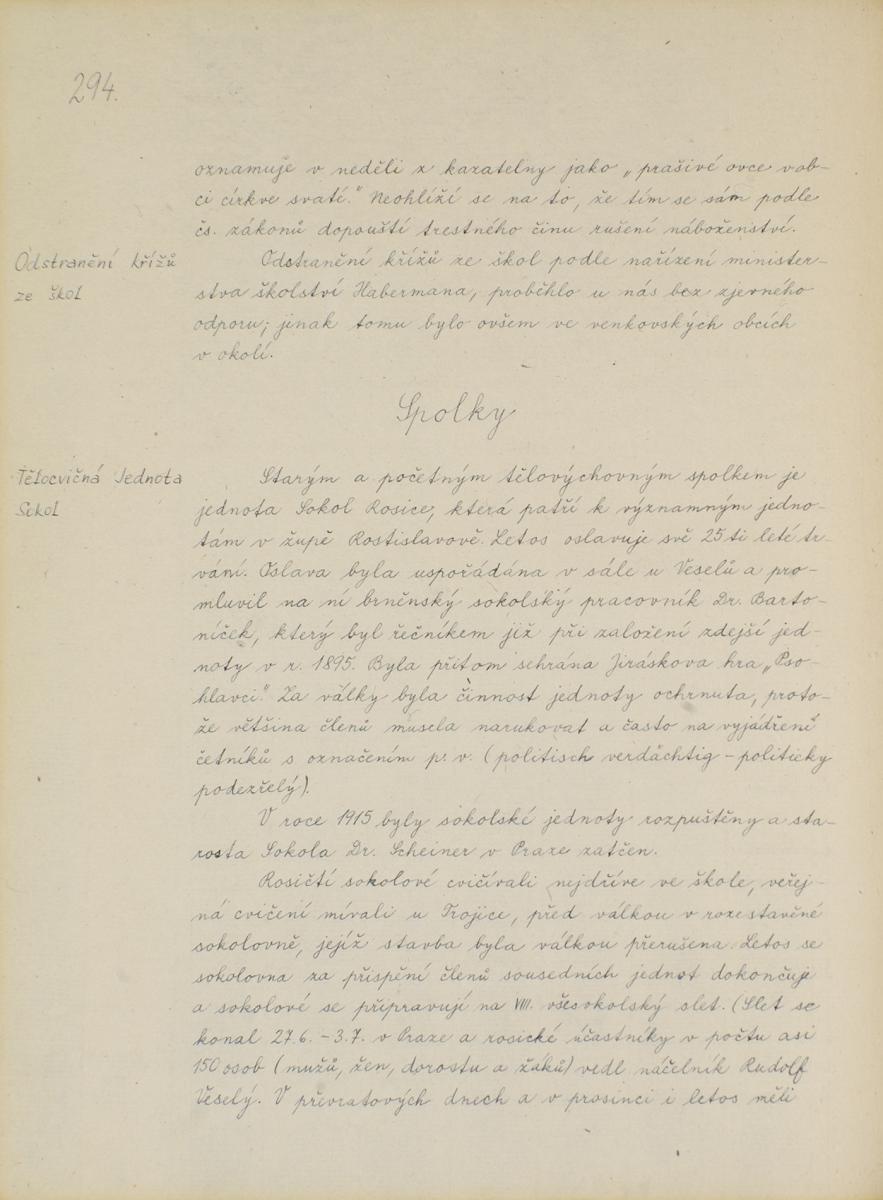 294.
oznamuje v neděli z kazatelny jako „prašivé ovce v ob-
ci církve svaté." Neohlíží se na to, že tím se sám podle
čs. zákonů dopouští trestného činu rušení náboženství.
Odstranění křížů
ze škol
Odstranění křížů ze škol podle nařízení minister-
stva školství Habermana, proběhlo u nás bez zjevného
odporu; jinak tomu bylo ovšem ve venkovských obcích
v okolí.
Spolky
Tělocvičná Jednota
Sokol
Starým a početným tělovýchovným spolkem je
jednota Sokol Rosice, která patří k významným jedno-
tám v župě Rostislavově. Letos oslavuje své 25ti leté tr-
vání. Oslava byla uspořádána v sále u Veselů a pro-
mluvil na ní brněnský sokolský pracovník Dr. Barto-
níček, který byl řečníkem již při založení zdejší jed-
noty v r. 1895. Byla přitom sehrána Jiráskova hra „Pso-
hlavci." Za války byla činnost jednoty ochrnuta, proto-
že většina členů musela narukovat a často na vyjádření
četníků s označením p. v. (politisch verdächtig - politicky
podezřelý).
V roce 1915 byly sokolské jednoty rozpuštěny a sta-
rosta Sokola Dr. Scheiner v Praze zatčen.
Rosičtí sokolové cvičívali nejdříve ve škole, veřej-
ná cvičení mívali u Trojice, před válkou v rozestavěné
sokolovně, jejíž stavba byla válkou přerušena. Letos se
sokolovna za přispění členů sousedních jednot dokončuje
a sokolové se připravují na VIII. všesokolský slet. (Slet se
konal 27.6. - 3.7. v Praze a rosické účastníky v počtu asi
150 osob (mužů, žen, dorostu a žáků) vedl náčelník Rudolf
Veselý. V převratových dnech a v prosinci i letos měli